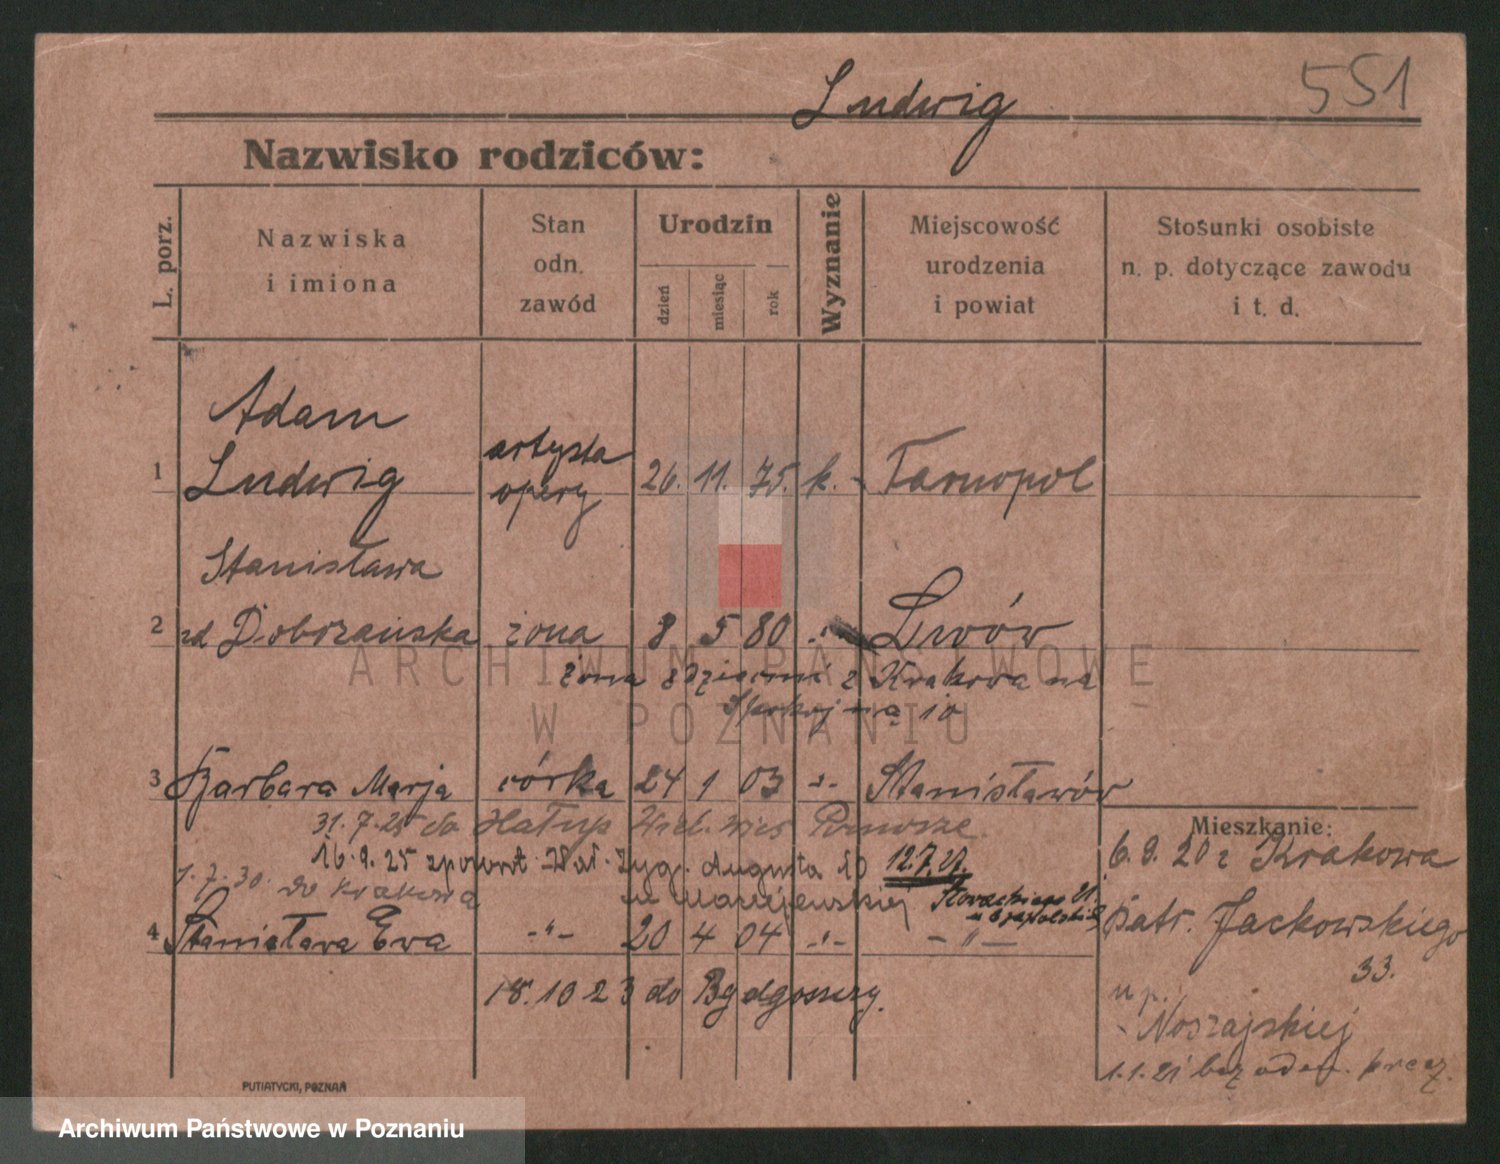 Ludwig
551
Nazwisko rodziców:
L. porz.
Nazwiska
i imiona
Stan
odn.
zawód
Urodzin
dzień
miesiąc
rok
Wyznanie
Miejscowość
urodzenia
i powiat
Stosunki osobiste
n. p. dotyczące zawodu
i t. d.
Adam
1 Ludwig artysta opery 26. 11. 75. k. - Tarnopol
Stanisława
2 zd Dobrzańska żona 8 5 80 -"- Lwów
żona z dziećmi z Krakowa na
Spokojną 10
3 Barbara Marja córka 24 1 03 -"- Stanisławów
31.7.25 do
16.9.25 z powrot. Wał. Zyg. Augusta 10 12.7.27.
1.7.30. do Krakowa
Słowackiego
4 Stanisława Ewa -"- 20 4 04 -"- -"-
18.10 23 do Bydgoszczy.
Mieszkanie:
6.9.20 z Krakowa
Patr. Jackowskiego
33.
u p.
Noszajskiej
1.1.21 bez odm.
PUTIATYCKI, POZNAŃ
ARCHIWUM PAŃSTWOWE
W POZNANIU
Archiwum Państwowe w Poznaniu